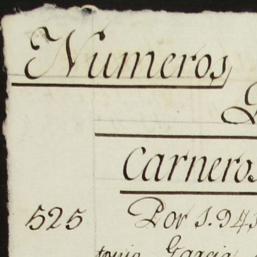 Numeros
Carneros
525 Por 1.943
Garcia